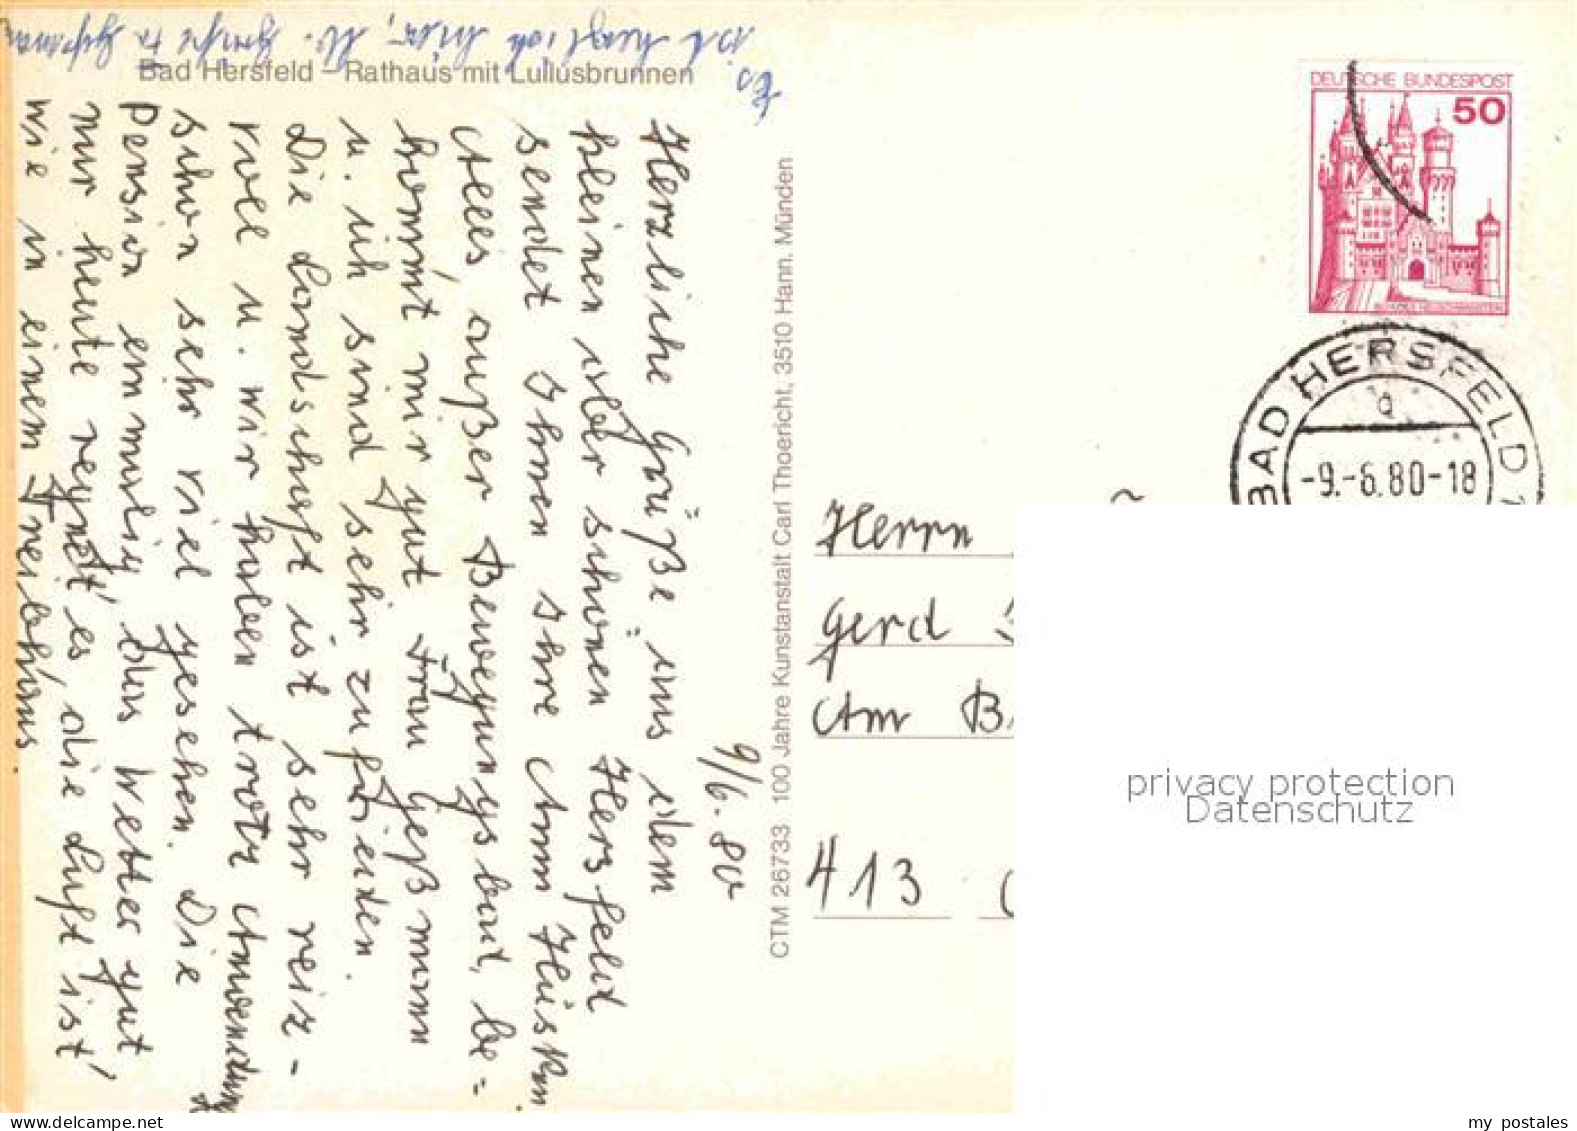 Bad Hersfeld – Rathaus mit Lullusbrunnen
9/6.80
Herzliche Grüße aus dem
kleinen aber schönen Hersfeld
sendet Ihnen Ihre Ann Hüskem
Alles außer Bewegungsbad, be=
kommt mir gut Frau Geßmann
u. ich sind sehr zufrieden.
Die Landschaft ist sehr reiz-
voll u. wir haben trotz Anwendung
schon sehr viel gesehen. Die
Pension einmalig, das Wetter gut
nur heute regnet es, die Luft ist
wie in einem Treibhaus.
Es
herzlich
CTM 26733 100 Jahre Kunstanstalt Carl Thoericht, 3510 Hann. Münden
DEUTSCHE BUNDESPOST
50
BAD HERSFELD 1
a
-9.-6.80-18
Herrn
Gerd
Am B
413
privacy protection
Datenschutz
my postales